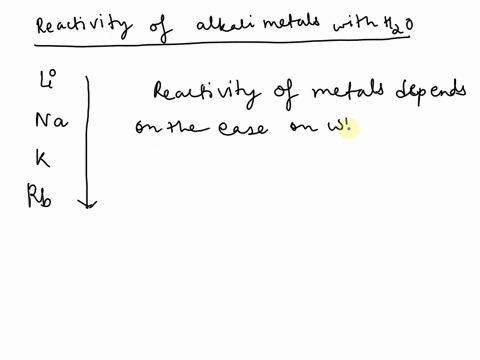 Reactivity of alkali metals with H₂O
Li
Reactivity of metals depends
Na
on the ease on
K
Rb